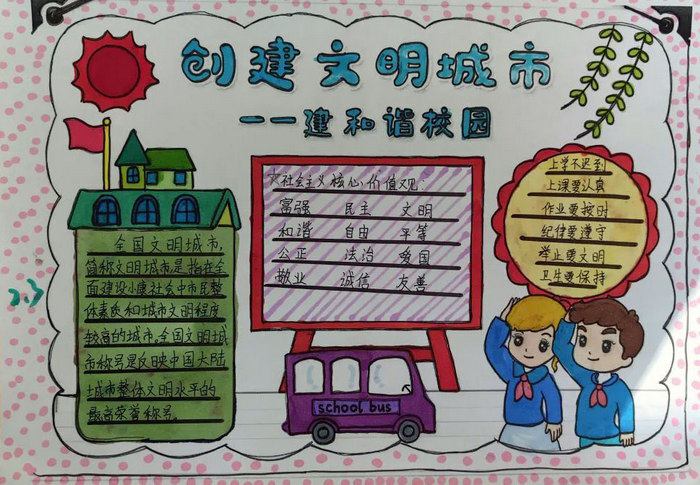 创建文明城市
——建和谐校园
全国文明城市,
简称文明城市是指在全
面建设小康社会中市民整
体素质和城市文明程度
较高的城市.全国文明城
市称号是反映中国大陆
城市整体文明水平的
最高荣誉称号.
社会主义核心价值观:
富强 民主 文明
和谐 自由 平等
公正 法治 爱国
敬业 诚信 友善
上学不迟到
上课要认真
作业要按时
纪律要遵守
举止要文明
卫生要保持
school bus
2.3